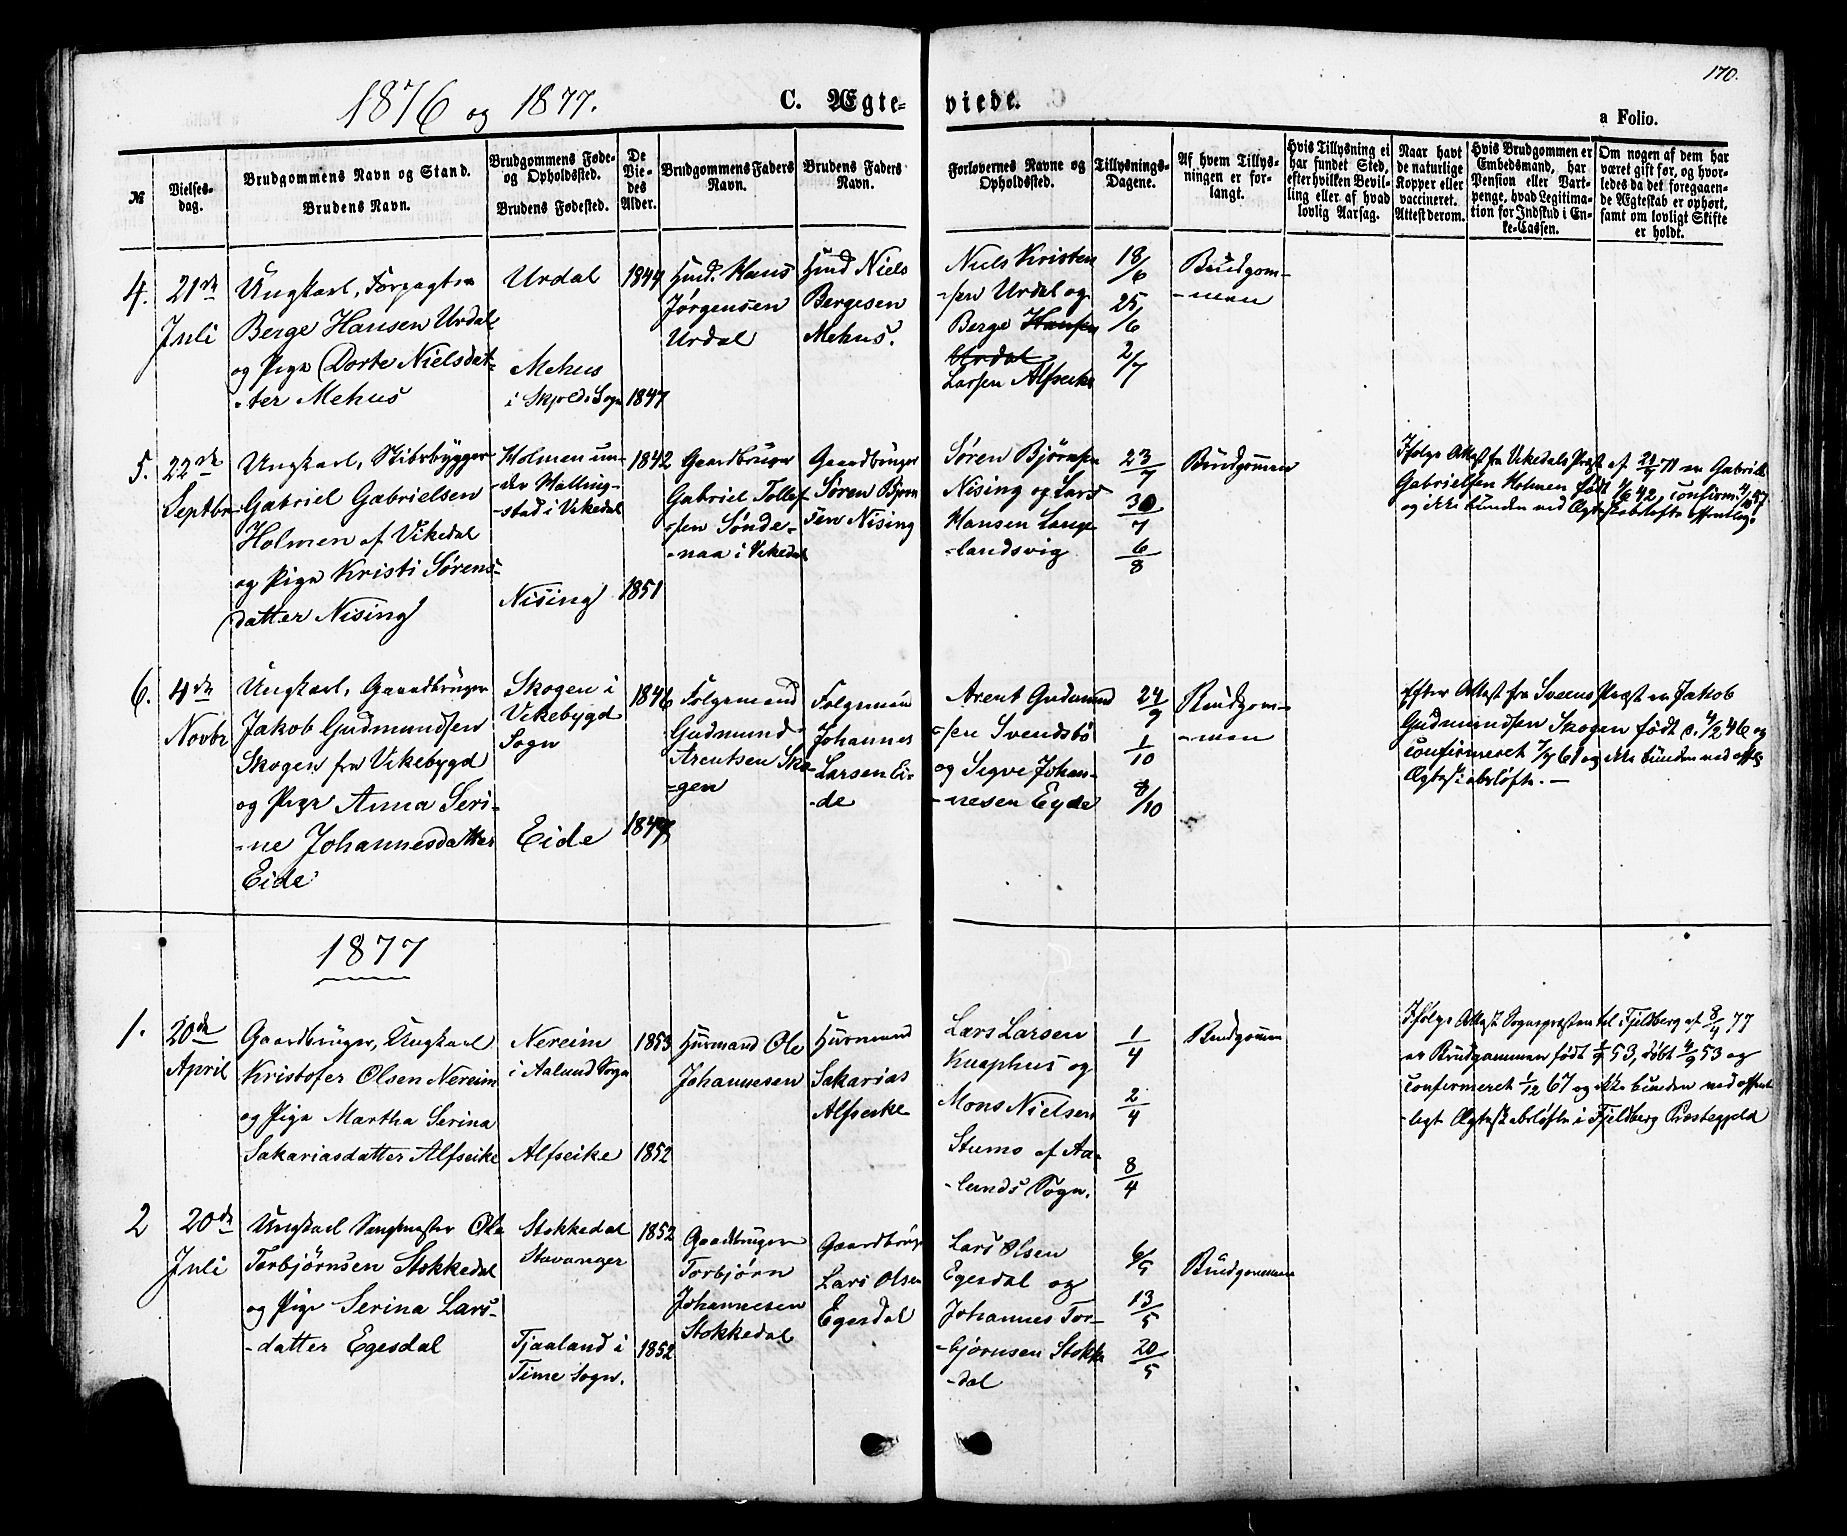 170.
1876 og 1877.
C. Ægte-
viede.
a Folio.
№
Vielses-
dag.
Brudgommens Navn og Stand.
Brudens Navn.
Brudgommens Føde-
og Opholdssted.
Brudens Fødested.
De
Vie-
des
Alder.
Brudgommens Faders
Navn.
Brudens Faders
Navn.
Forlovernes Navne og
Opholdssted.
Tillysnings-
Dagene.
Af hvem Tillys-
ningen er for-
langt.
Hvis Tillysning ei
har fundet Sted,
efter hvilken Bevil-
ling eller af hvad
lovlig Aarsag.
Naar havt
de naturlige
Kopper eller
vaccineret.
Attest derom.
Hvis Brudgommen er
Embedsmand, har
Pension eller Vart-
penge, hvad Legitima-
tion for Indskud i En-
ke-Cassen.
Om nogen af dem har
været gift før, og hvor-
ledes da det foregaaen-
de Ægteskab er ophørt,
samt om lovligt Skifte
er holdt.
4.
21de
Juli
Ungkarl, Forpagter
Berge Hansen Urdal
og Pige Dorte Nielsdat-
-ter Mehus
Urdal
Mehus
i Skjold Sogn
1844
1847
Husd. Hans
Jørgensen
Urdal
Husd Niels
Bergesen
Mehus.
Niels Kristen
-sen Urdal og
Berge Hansen
Urdal
Larsen Alfseike
18/6
25/6
2/7
Brudgom-
-men
5.
22de
Septbr
Ungkarl, Skibsbygger
Gabriel Gabrielsen
Holmen af Vikedal
og Pige Kristi Sørens-
datter Nising
Holmen un-
-der Halling-
-stad i Vikedal
Nising
1842
1851
Gaardbruger
Gabriel Tollef
-sen Sønde-
-naa i Vikedal
Gaardbruger
Søren Bjørn
-sen Nising
Søren Bjørnsen
Nising og Lars
Hansen Lange
-landsvig
23/7
30/7
6/8
Brudgommen
Ifølge Attest fra Vikedals Præst af 21/7 71 er Gabriel
Gabrielsen Holmen født 1/6 42, confirm. 4/10 57
og ikke bunden ved Ægteskabsløfte offentlig.
6.
4de
Novbr
Ungkarl, Gaardbruger
Jakob Gudmundsen
Skogen fra Vikebygd
og Pige Anna Seri-
-ne Johannesdatter
Eide
Skogen i
Vikebygd
Sogn
Eide
1846
Folgemand
Gudmund
Arentsen Sko-
-gen
Folgemand
Johannes
Larsen Ei-
-de
Arent Gudmund
-sen Svendsbø
og Sigve Johan-
-nesen Eyde
24/9
1/10
8/10
Brudgom-
-men
Efter Attest fra Sveens Præst er Jakob
Gudmundsen Skogen født d. 4/2 46 og
confirmeret 7/4 61 og ikke bunden ved offtl
Ægteskabsløfte. —
1877
1.
20de
April
Gaardbruger, Ungkarl
Kristofer Olsen Nereim
og Pige Martha Serina
Sakariasdatter Alfseike
Nereim
i Aalund Sogn
Alfseike
1853
1852
Husmand Ole
Johannesen
Husmand
Sakarias
Alfseike
Lars Larsen
Knaphus og
Mons Nielsen
Stumo af Aa-
-lunds Sogn.
1/4
2/4
8/4
Brudgommen
Ifølge Attest Sognepræsten til Fjeldberg af 8/4 77
er Brudgommen født 2/7 53, døbt 4/9 53 og
confirmeret 1/12 67 og ikke bunden ved offent
-ligt Ægteskabsløfte i Fjeldberg Præstegjeld
2
20de
Juli
Ungkarl Ole
Torbjørnsen Stokkedal
og Pige Serina Lars-
-datter Egesdal
Stokkedal
Stavanger
Tjaaland i
Time Sogn.
1852
1852
Gaardbruger
Torbjørn
Johannesen
Stokkedal
Gaardbruger
Lars Olsen
Egesdal
Lars Olsen
Egesdal og
Johannes Tor-
-bjørnsen Stokke
-dal
6/5
13/5
20/5
Brudgommen